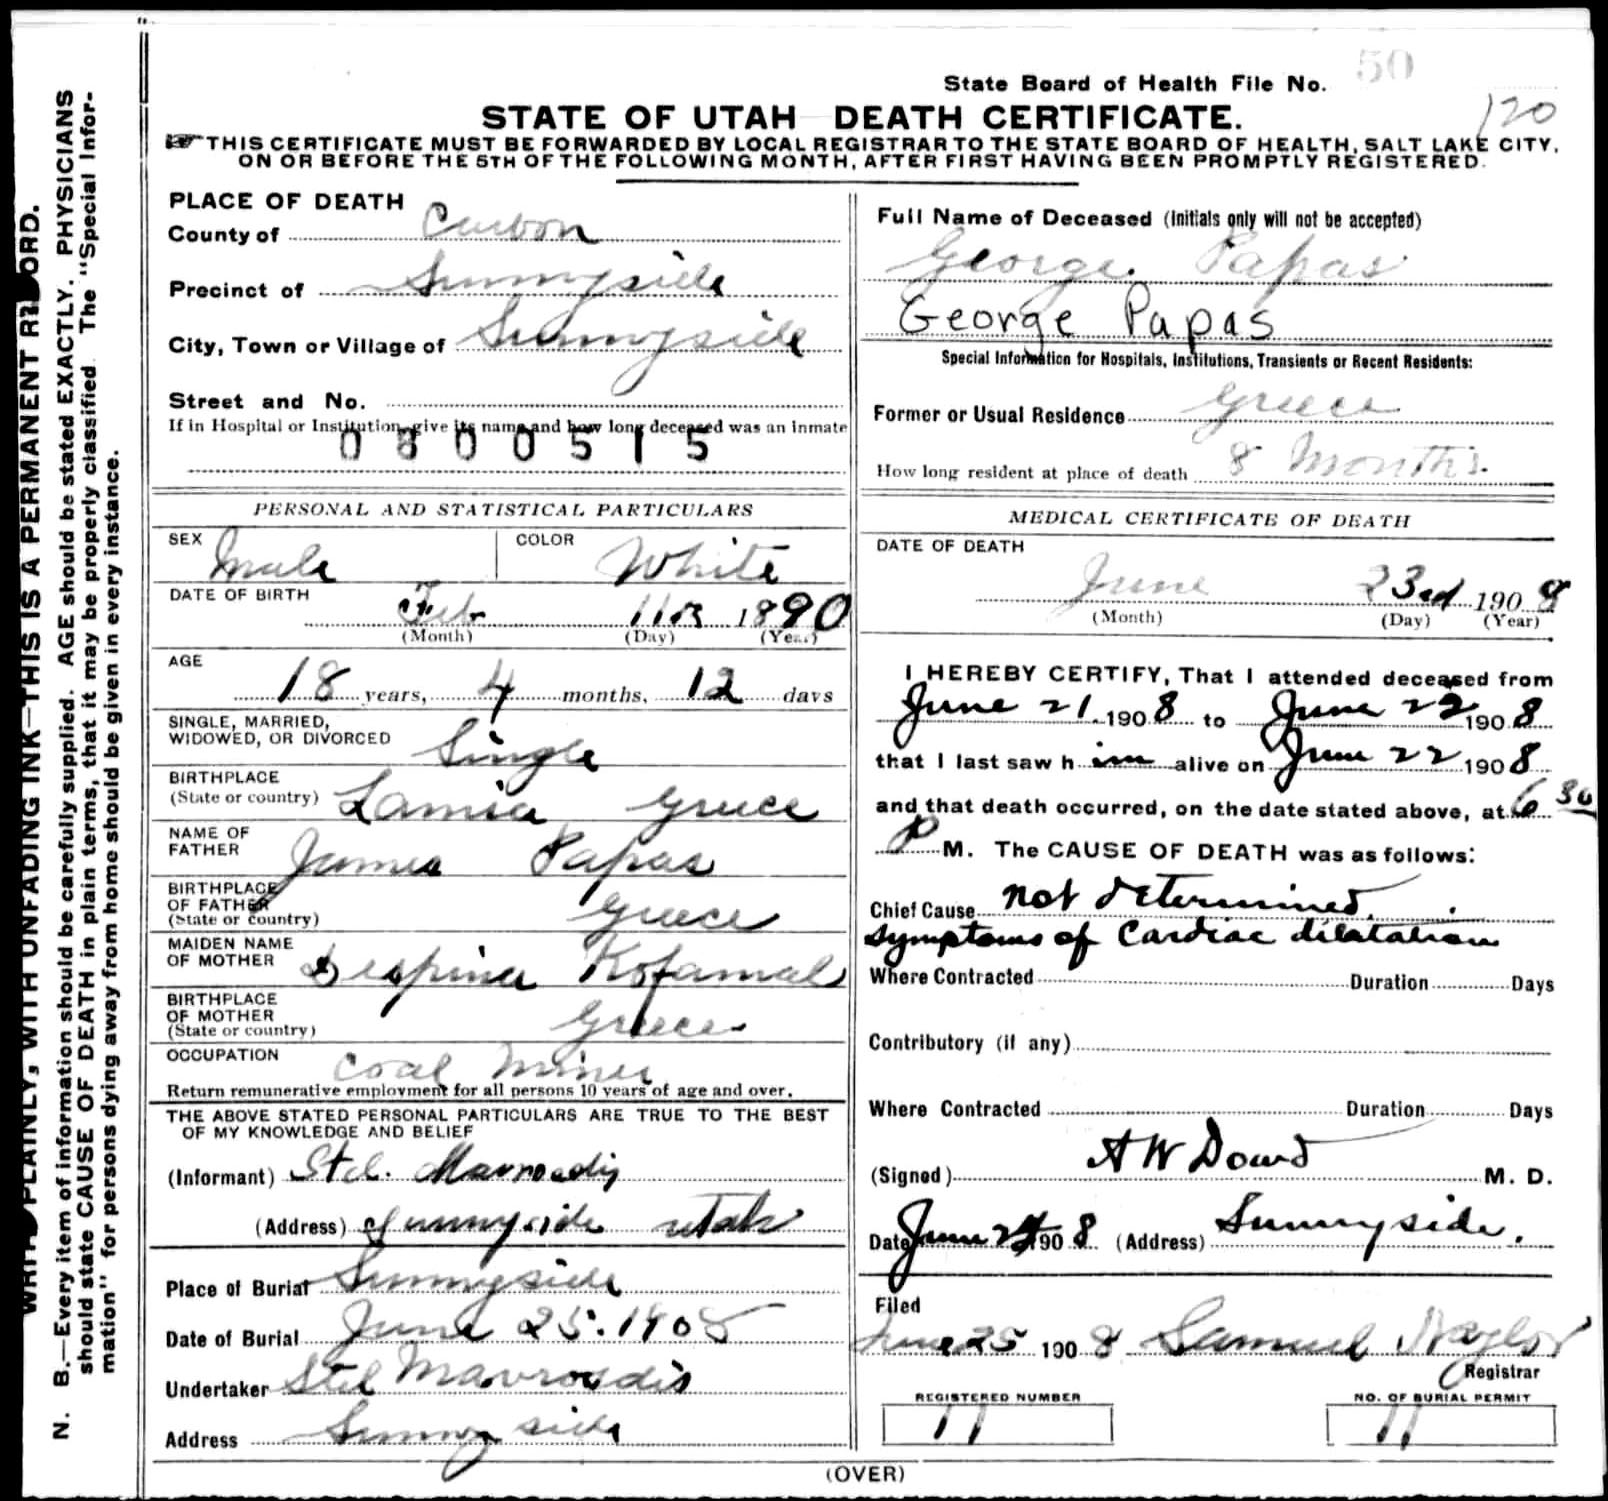 State Board of Health File No. 50
120
STATE OF UTAH DEATH CERTIFICATE.
THIS CERTIFICATE MUST BE FORWARDED BY LOCAL REGISTRAR TO THE STATE BOARD OF HEALTH, SALT LAKE CITY,
ON OR BEFORE THE 5TH OF THE FOLLOWING MONTH, AFTER FIRST HAVING BEEN PROMPTLY REGISTERED.
PLAINLY, WITH UNFADING INK—THIS IS A PERMANENT RECORD.
N. B.—Every item of information should be carefully supplied. AGE should be stated EXACTLY. PHYSICIANS
should state CAUSE OF DEATH in plain terms, that it may be properly classified. The "Special Infor-
mation" for persons dying away from home should be given in every instance.
PLACE OF DEATH
County of Carbon
Precinct of Sunnyside
City, Town or Village of Sunnyside
Street and No.
If in Hospital or Institution, give its name and how long deceased was an inmate
0800515
PERSONAL AND STATISTICAL PARTICULARS
SEX Male COLOR White
DATE OF BIRTH Feb 11 1890
(Month) (Day) (Year)
AGE
18 years, 4 months, 12 days
SINGLE, MARRIED,
WIDOWED, OR DIVORCED Single
BIRTHPLACE
(State or country) Lamia Greece
NAME OF
FATHER James Papas
BIRTHPLACE
OF FATHER
(State or country) Greece
MAIDEN NAME
OF MOTHER Despina Kofamal
BIRTHPLACE
OF MOTHER
(State or country) Greece
OCCUPATION Coal Miner
Return remunerative employment for all persons 10 years of age and over.
THE ABOVE STATED PERSONAL PARTICULARS ARE TRUE TO THE BEST
OF MY KNOWLEDGE AND BELIEF
(Informant) Stel. Mavroudis
(Address) Sunnyside Utah
Place of Burial Sunnyside
Date of Burial June 25. 1908
Undertaker Stel Mavroudis
Address Sunnyside
Full Name of Deceased (Initials only will not be accepted)
George Papas
George Papas
Special Information for Hospitals, Institutions, Transients or Recent Residents:
Former or Usual Residence Greece
How long resident at place of death 8 Months.
MEDICAL CERTIFICATE OF DEATH
DATE OF DEATH
June 23rd 1908
(Month) (Day) (Year)
I HEREBY CERTIFY, That I attended deceased from
June 21 1908 to June 22 1908
that I last saw him alive on June 22 1908
and that death occurred, on the date stated above, at 6 30
P M. The CAUSE OF DEATH was as follows:
Chief Cause not determined
symptoms of Cardiac dilatation
Where Contracted Duration Days
Contributory (if any)
Where Contracted Duration Days
(Signed) A W Dowd M. D.
Date June 24 1908 (Address) Sunnyside.
Filed
June 25 1908 Samuel Naylor
Registrar
REGISTERED NUMBER NO. OF BURIAL PERMIT
11 11
(OVER)